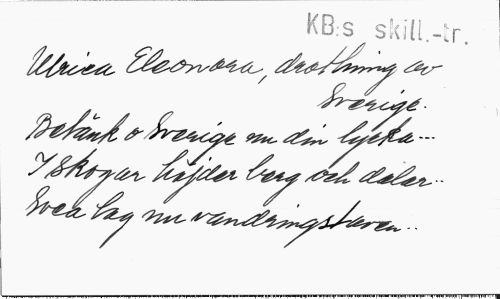 KB:s skill.-tr.
Ulrica Eleonora, drottning av
Sverige.
Betänk o Sverige nu din lycka---
I skogar höjder berg och dalar..
Svea tag nu vandringstaven..